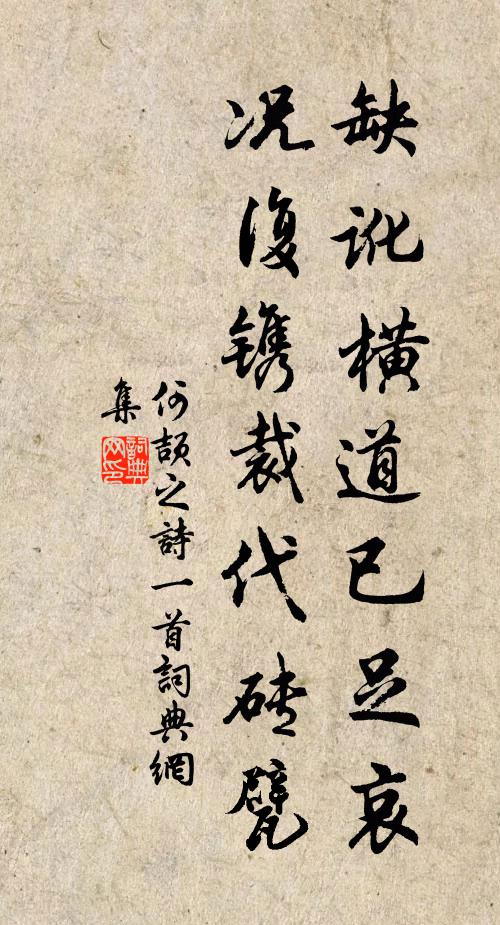 缺訛橫道已足哀
况復镌裁代砖甓
何頡之詩一首詞典網
集
詞典
网印